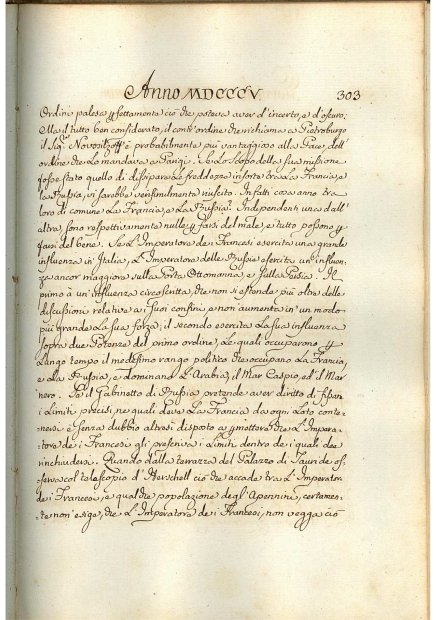 Anno MDCCCV. 303
Ordini palesa perfettamente ciò che poteva aver d'incerto, e d'oscuro.
Ma il tutto ben considerato, il contr'ordine che richiama a Pietroburgo
il Sig.r Novosilzoff è probabilmente più vantaggioso alla Pace, dell'
ordine che lo mandava a Parigi. Se lo scopo della sua missione
fosse stato quello di dissipare le freddezze insorte tra la Francia, e
la Russia, vi sarebbe verisimilmente riuscito. In fatti cosa anno tra
loro di comune la Francia, e la Russia? Independenti una dall'
altra, sono respettivamente nulle per farsi del male, e tutto possono per
farsi del bene. Se l'Imperatore de Francesi esercita una grande
influenza in Italia, l'Imperatore delle Russie esercita un'influen-
za ancor maggiore sulla Porta Ottomanna, e sulla Persia. Il
primo à un'influenza circoscritta, che non si estende più oltre delle
discussioni relative a' suoi confini, e non aumenta in un modo
più grande la sua forza; il secondo esercita la sua influenza
sopra due Potenze del primo ordine, le quali occuparono per
lungo tempo il medesimo rango politico che occupano la Francia,
e la Russia, e dominano l'Arabia, il Mar Caspio, ed il Mar
nero. Se il Gabinetto di Russia pretende aver diritto di fissare
i limiti precisi, ne quali deva la Francia da ogni lato conte-
nersi è senza dubbio altresì disposto a permettere che l'Impera-
tore de' Francesi gli prescriva i limiti dentro de i quali deve
rinchiudersi. Quando dalla terrazza del Palazzo di Tauride os-
serva col telescopio d'Herschell ciò che accade tra l'Imperatore
de i Francesi, e qualche popolazione degl'Apennini, certamen-
te non esige, che l'Imperatore de i Francesi, non vegga ciò